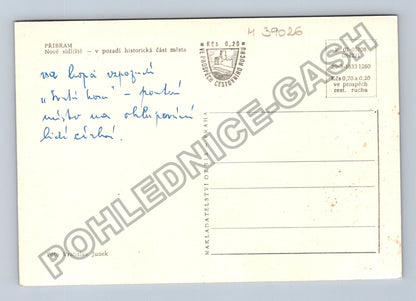 M 39026
PŘÍBRAM
Nové sídliště — v pozadí historická část města
Kčs 0,20
VE PROSPĚCH CESTOVNÍHO RUCHU
Kčs 0,70 a 0,20
ve prospěch
cest. ruchu
na kopci v pozadí
„Svatá hora" - poutní
místo na
lidí
NAKLADATELSTVÍ ORBIS PRAHA
Foto Vladislav Janek
POHLEDNICE-GASH